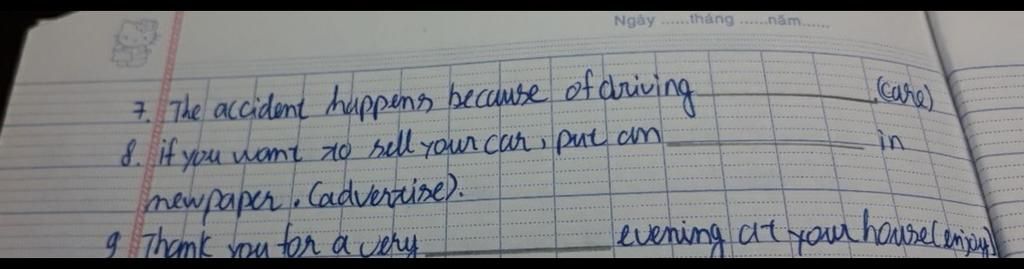 Ngày ......tháng ......năm......
7. The accident happens because of driving __________ (care)
8. if you want to sell your car, put an __________ in
newpaper. (advertise).
9 Thank you for a very __________ evening at your house (enjoy)